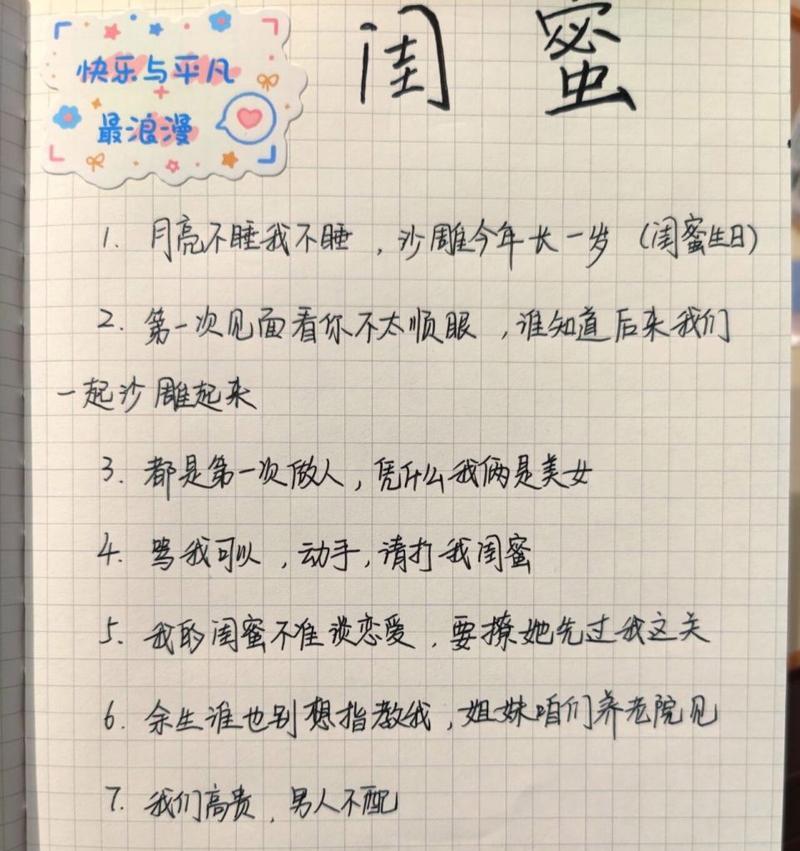 快乐与平凡
最浪漫
闺 蜜
1. 月亮不睡我不睡，沙雕今年长一岁（闺蜜生日）
2. 第一次见面看你不太顺眼，谁知道后来我们
一起沙雕起来
3. 都是第一次做人，凭什么我俩是美女
4. 骂我可以，动手，请打我闺蜜
5. 我的闺蜜不准谈恋爱，要撩她先过我这关
6. 余生谁也别想指教我，姐妹咱们养老院见
7. 我们高贵，男人不配